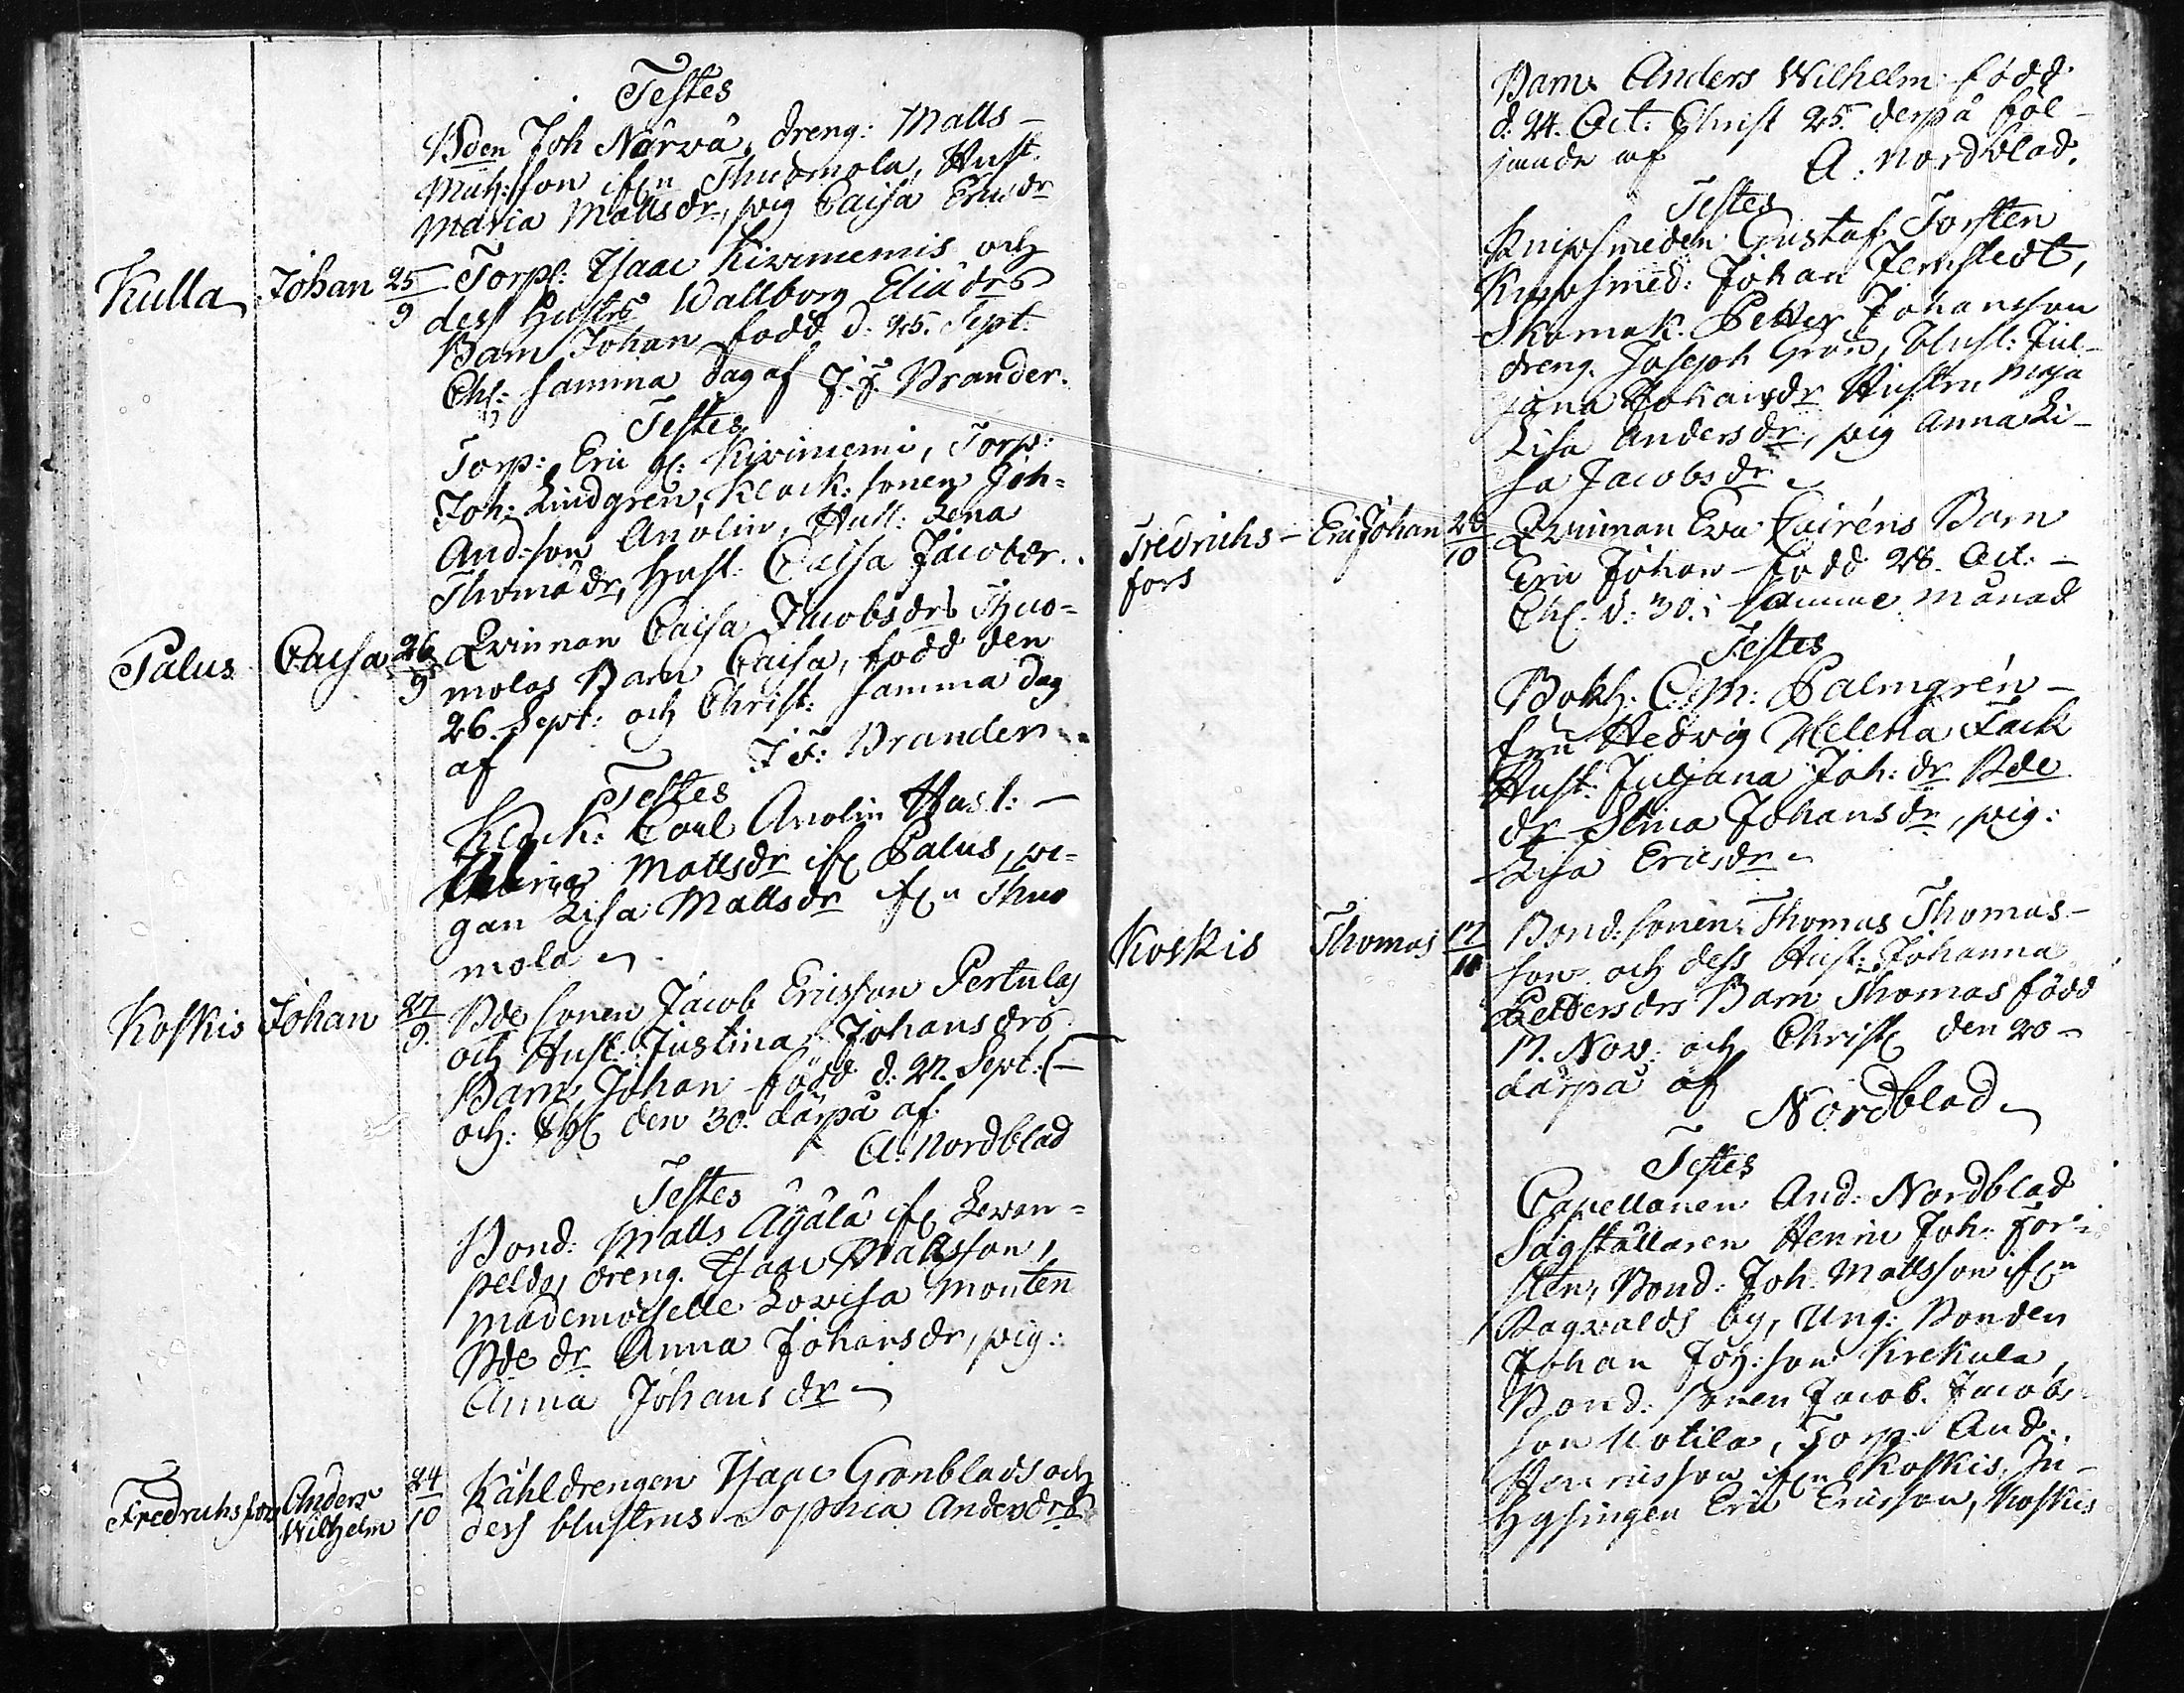 Testes
Bden Joh Närvä, dreng: Matts
Mich:son ifrn Thuomola, Hust.
Maria Mattsdr, pig Caisa Ericsdr
Kulla Johan 25/9 Torp: Isaac Kiviniemis och
dess Hustrs Wallborg Eliædrs
Barn Johan född d. 25. Sept.
Chr: samma dag af J. F. Brander.
Testes
Torp: Eric Kiviniemi, Torp:
Joh: Lindgren, Klock: sonen Joh=
And:son Anolin, Hust: Lena
Thomædr, Hust: Caisa Jacobdr.
Palus Caisa 26/9 Qvinnan Caisa Jacobsdrs Thuo=
molas Barn Caisa, född den
26. Sept: och Christ: samma dag
af J F: Brander
Testes
Klock: Carl Anolin Hust: -
Maria Mattsdr ifr Palus, pi=
gan Lisa Mattsdr ifrn Thuo
mola
Koskis Johan 27/9 Bde sonen Jacob Ericsson Pertulas
och Hust: Justina Johansdrs
Barn Johan född d: 27. Sept: -
och: Chr den 30. därpå af
A: Nordblad
Testes
Bond: Matts Äijälä ifr Levan=
pelda, dreng. Isaac Mattsson,
Mademoiselle Lovisa Monten
Bde dr Anna Johansdr, pig:
Anna Johansdr
Fredrichsfors Anders Wilhelm 24/10 Kåhldrengen Isaac Grönblads och
dess Hustrus Sophia Andersdrs
Barn Anders Wilhelm född
d: 24. Oct: Christ 25. derpå föl-
jande af A. Nordblad.
Testes
Knipsmeden Gustaf Forsten
Knipsmed: Johan Jernstedt,
Skomak. Petter Johansson
dreng. Joseph Grön, Hust: Jul-
jana Johansdr Hustru Maja
Lisa Andersdr, pig Anna Li-
sa Jacobsdr
Fredrichs- Eric Johan 28/10 Qvinnan Eva Cairéns Barn
fors Eric Johan - född 28. Oct: -
Chr. d: 30. i samme månad
Testes
Bokh: C. M: Palmgrén -
fru Hedvig Helena Fack
Hust: Juljana Joh: dr Bde
dr Stina Johansdr, pig:
Lisa Ericsdr
Koskis Thomas 17/11 Bond: sonen Thomas Thomas-
son och dess Hust: Johanna
Pettersdrs Barn Thomas född
17. Nov: och Christ den 20 -
därpå af
Nordblad
Testes
Capellanen And: Nordblad
Sågställaren Henric Joh: For-
sten, Bond: Joh. Mattsson ifrn
Ragvalds by, Ung: Bonden
Johan Joh:son Krekula,
Bond: sonen Jacob. Jacobs
son Uotila, Torp. And.
Henricsson ifrn Koskis, In-
hysingen Eric Ericsson, Koskis